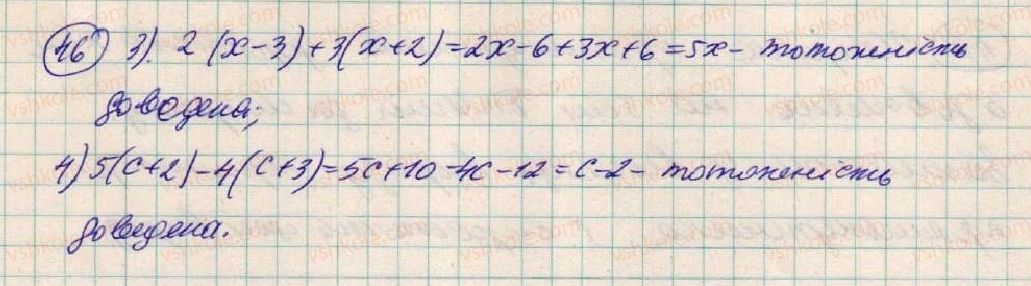 46 3). 2 (x-3)+3(x+2)=2x-6+3x+6=5x- тотожність
доведена;
4) 5(c+2)-4(c+3)=5c+10-4c-12=c-2- тотожність
доведена.